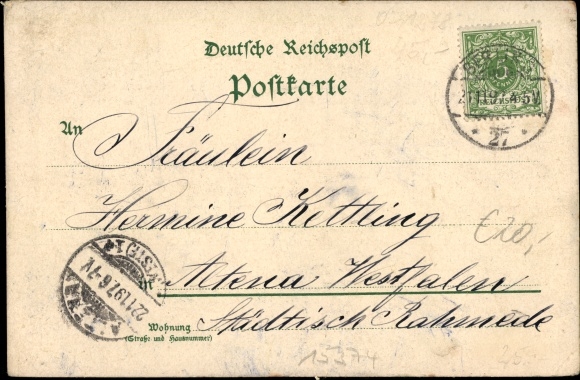 Deutsche Reichspost
Postkarte
An
Fräulein
Hermine Kettling
in Altena Westfalen
Wohnung
(Straße und Hausnummer)
Städtisch Rahmede
ALTENA (WESTF) 1
22.11.97.6-7V
5
27
€20,-
15374